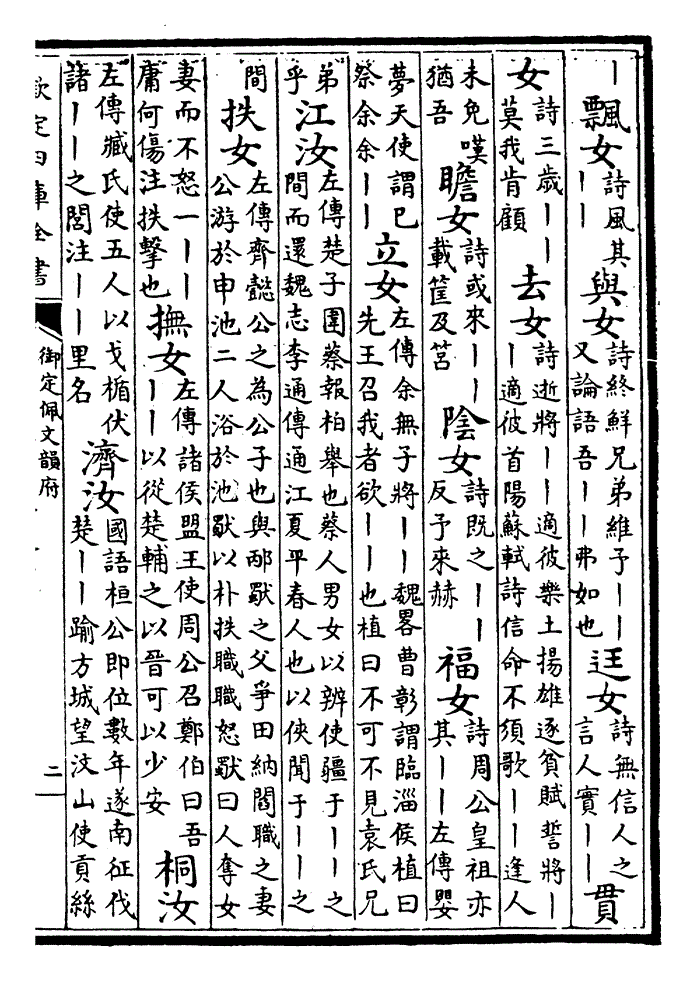 丨飄女詩風其丨丨與女詩終鮮兄弟維予丨丨又論語吾丨丨弗如也迋女詩無信人之言人實丨丨貫
女詩三歲丨丨莫我肯顧去女詩逝將丨丨適彼樂土揚雄逐貧賦誓將丨丨適彼首陽蘇軾詩信命不須歌丨丨逢人
未免嘆猶吾瞻女詩或來丨丨載筐及筥陰女詩既之丨丨反予來赫福女詩周公皇祖亦其丨丨左傳嬰
夢天使謂已祭余余丨丨立女左傳余無子將丨丨魏畧曹彰謂臨淄侯植曰先王召我者欲丨丨也植曰不可不見袁氏兄
弟乎江汝左傳楚子圍蔡報柏舉也蔡人男女以辨使疆于丨丨之間而還魏志李通傳通江夏平春人也以俠聞于丨丨之
間抶女左傳齊懿公之為公子也與邴歜之父爭田納閻職之妻公游於申池二人浴於池歜以朴抶職職怒歜曰人奪女
妻而不怒一丨丨庸何傷注抶擊也撫女左傳諸侯盟王使周公召鄭伯曰吾丨丨以從楚輔之以晉可以少安桐汝
左傳臧氏使五人以戈楯伏諸丨丨之閭注丨丨里名濟汝國語桓公即位數年遂南征伐楚丨丨踰方城望汶山使貢絲
欽定四庫全書
御定佩文韻府
二